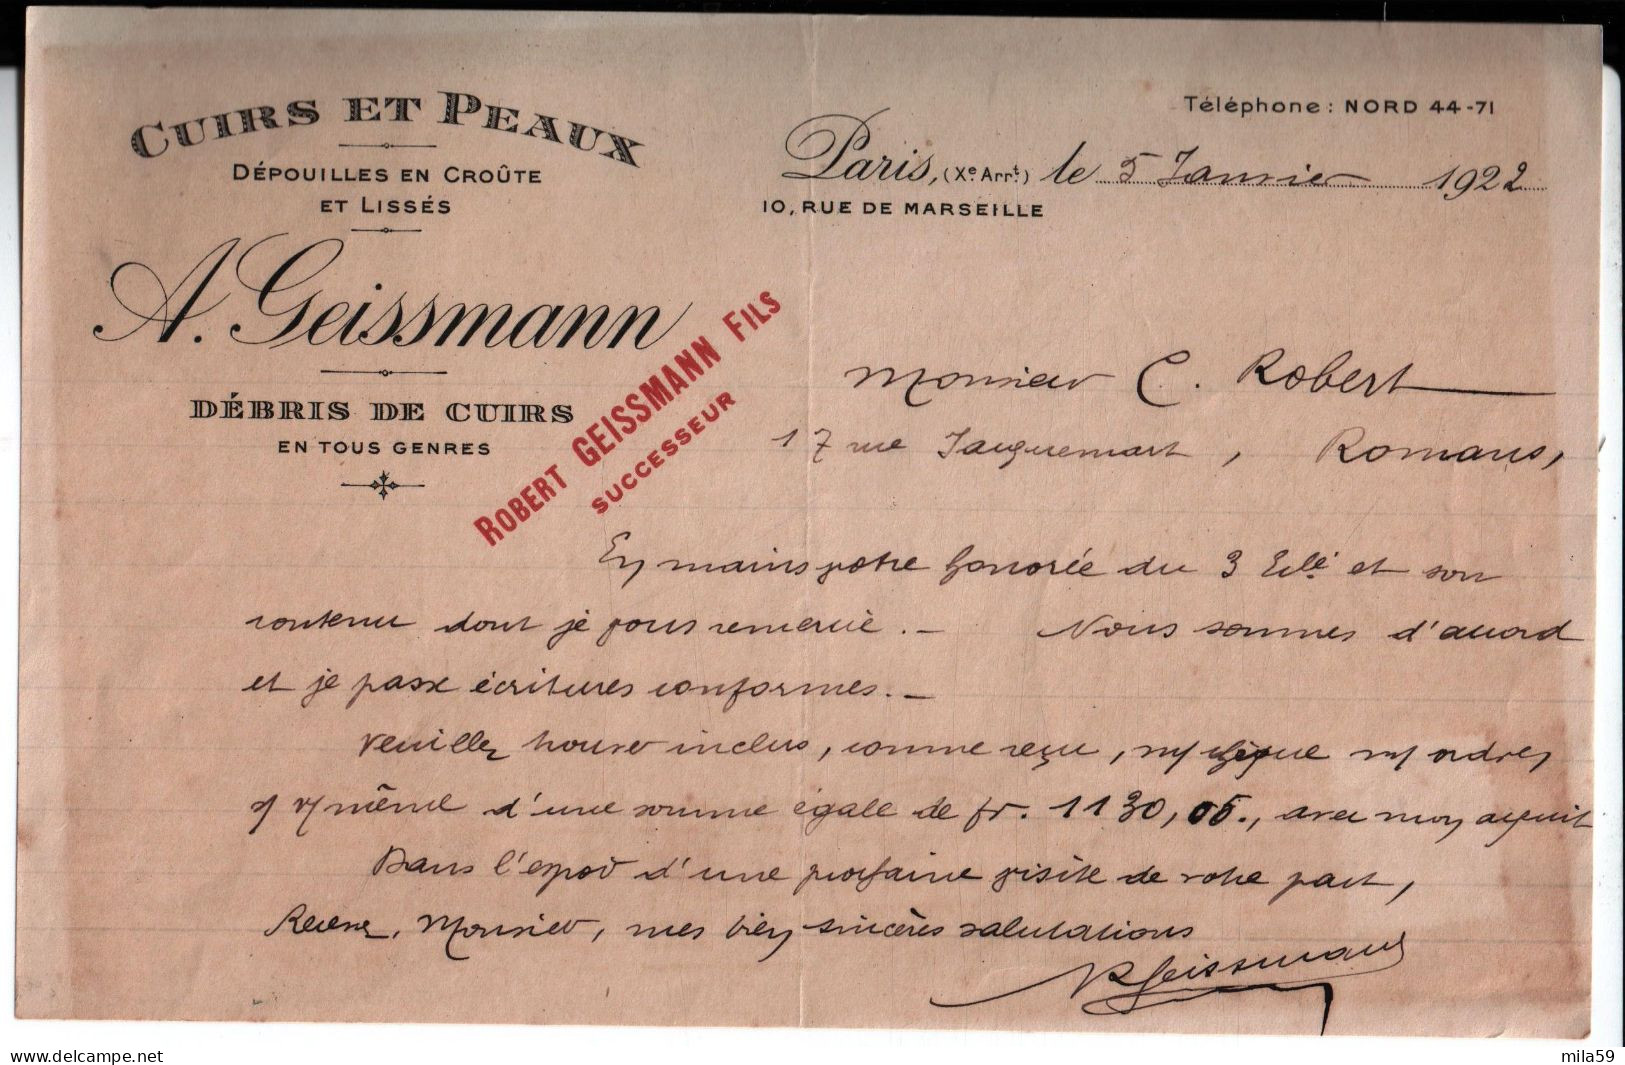 CUIRS ET PEAUX
DÉPOUILLES EN CROÛTE
ET LISSÉS
A. Geissmann
DÉBRIS DE CUIRS
EN TOUS GENRES
ROBERT GEISSMANN FILS
SUCCESSEUR
Téléphone : NORD 44-71
Paris, (Xe Arrt) le 5 Janvier 1922
10, RUE DE MARSEILLE
Monsieur C. Robert
17 rue Jacquemart, Romans,
En mains votre honorée du 3 et son
contenu dont je vous remercie. – Nous sommes d'accord
et je passe écritures conformes. –
Veuillez trouver inclus, comme reçu, chèque ordres
même d'une somme égale de fr. 1130,05., avec mon acquit
Dans l'espoir d'une prochaine visite de votre part,
Recevez, Monsieur, mes bien sincères salutations
R Geissmann
delcampe.net
mila59